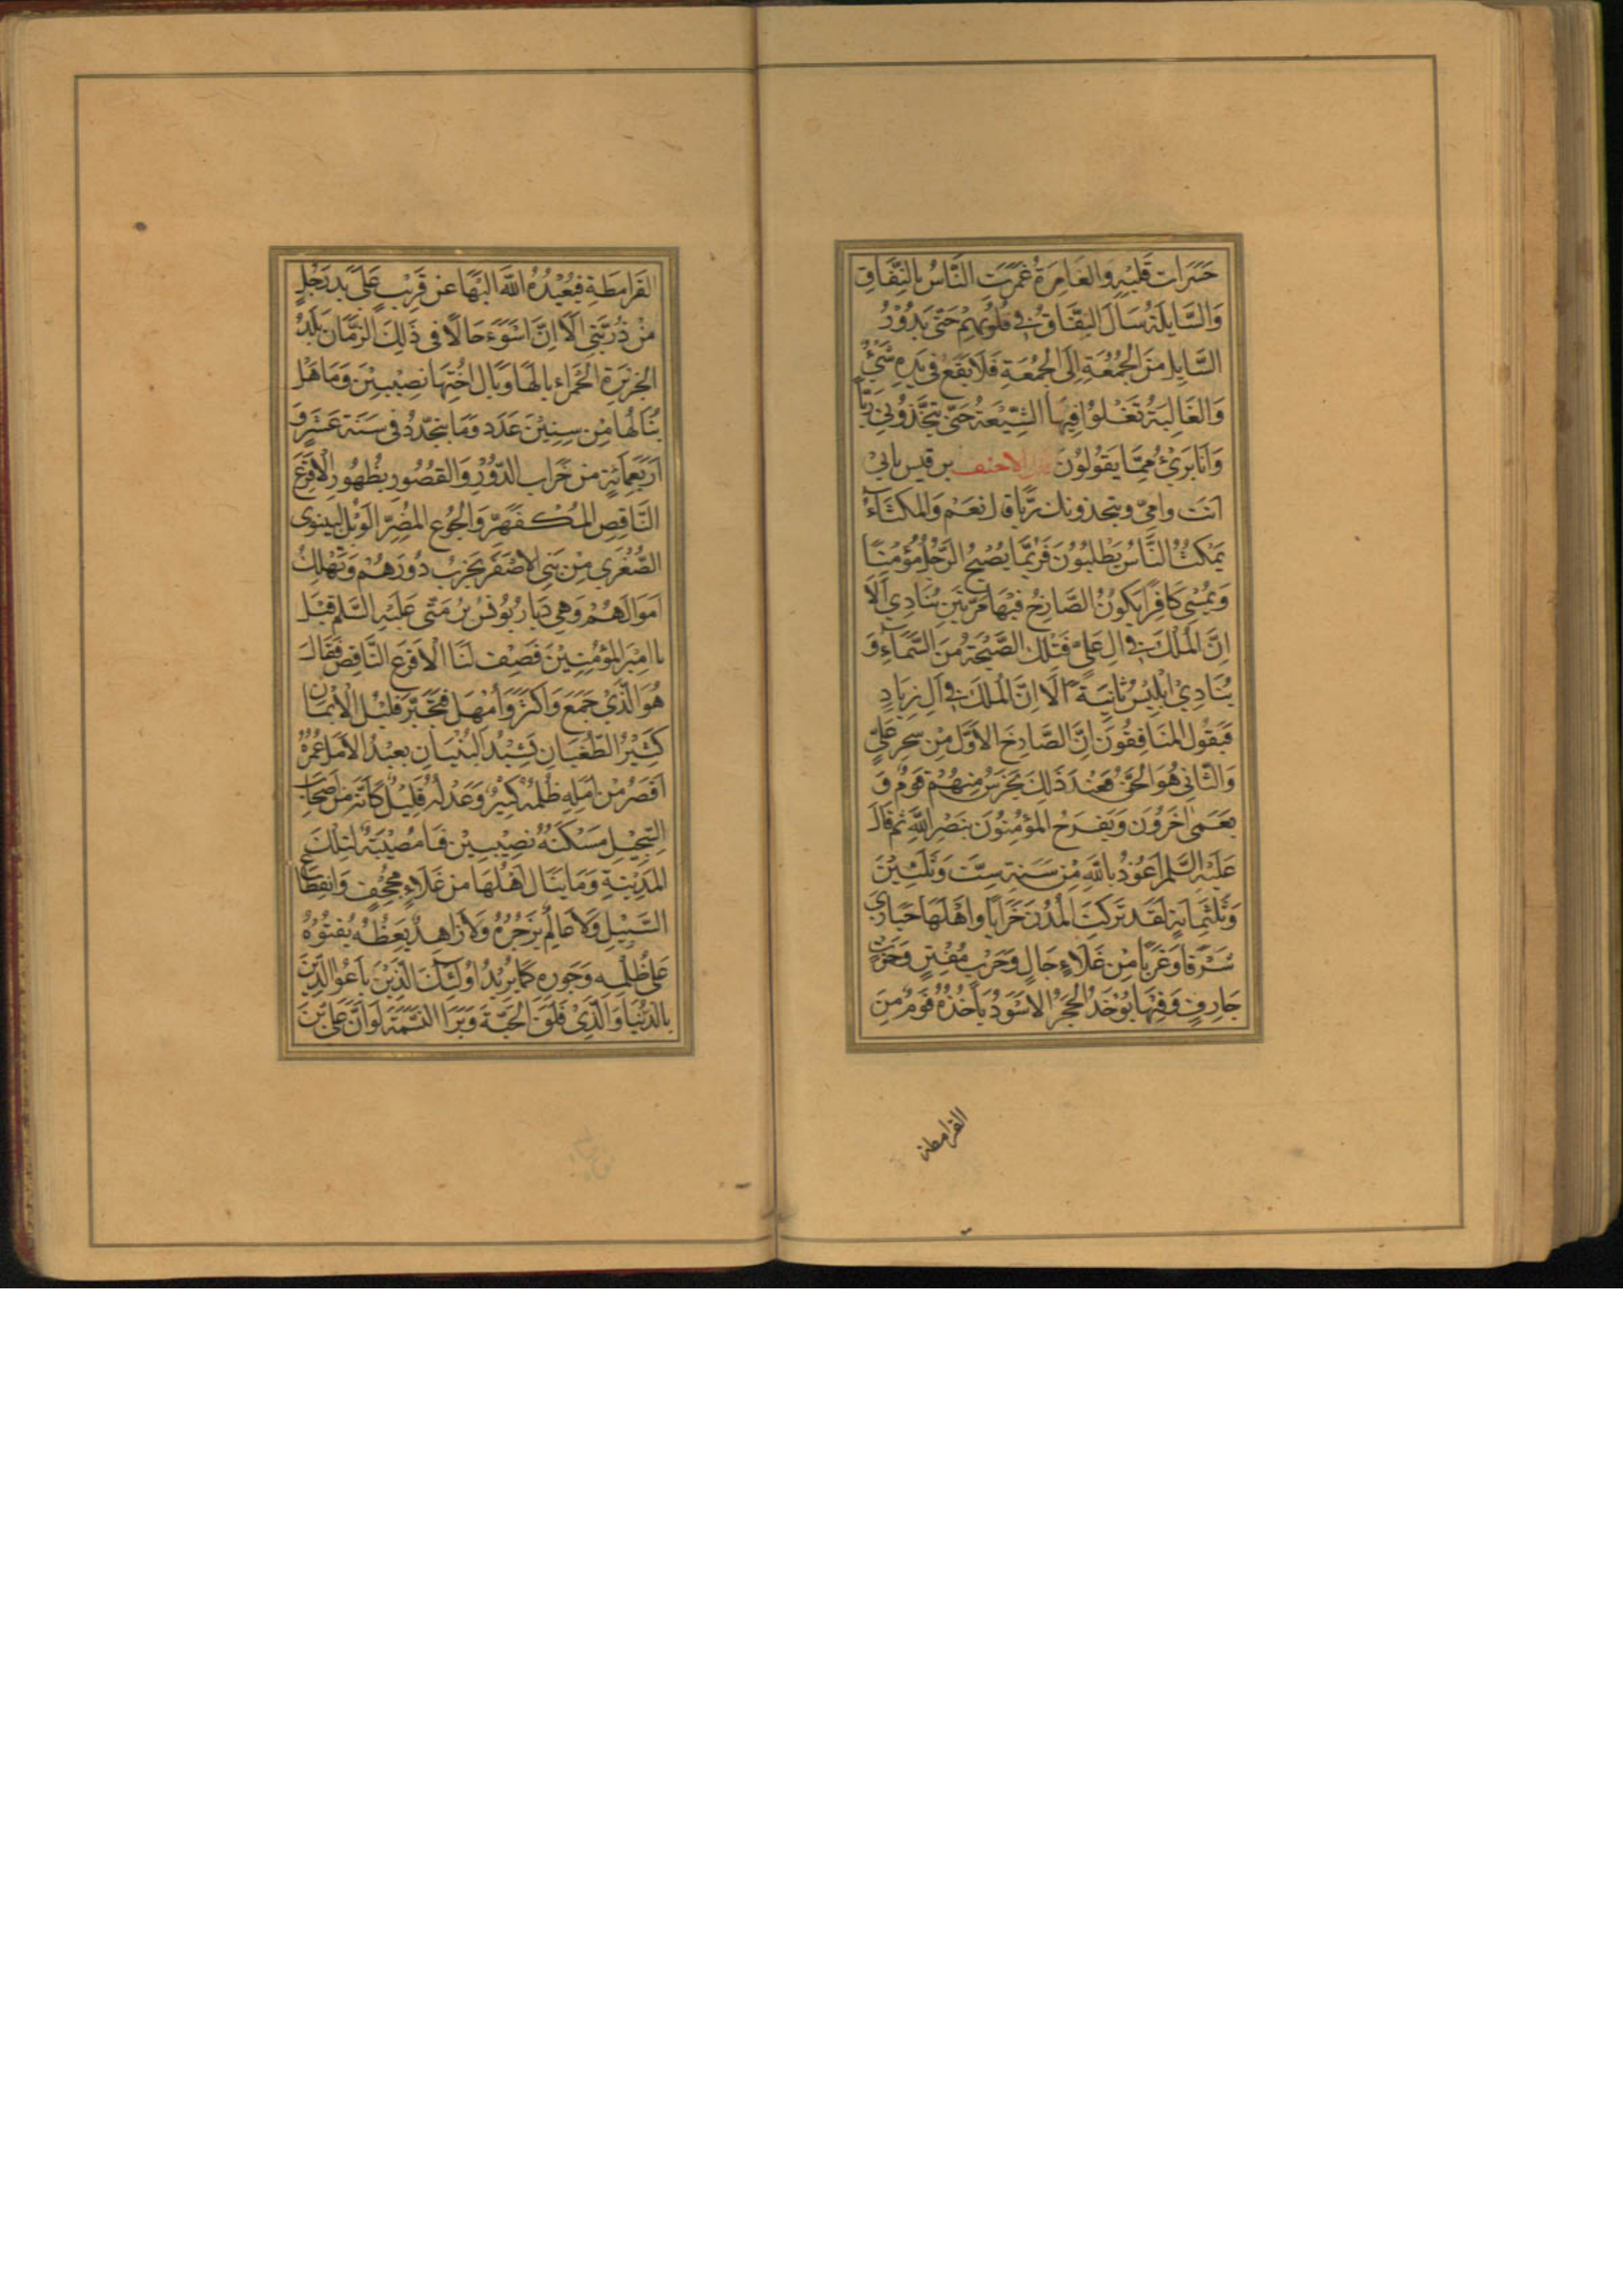 حَسَرَات قَلْبِهِ وَالغَامِرَةُ غَمَرَتِ النَّاسُ بِالنِّفَاقِ
وَالسَّايِلَةُ سَالَ النِّفَاقُ فِي قُلُوبِهِمْ حَتّى يَدُوْرُ
السَّايِلُ مِنَ الجُمُعَةِ اِلَى الجُمُعَةِ فَلَا يَقَعُ فِي يَدِهِ شَيْءٌ
وَالغَالِيَةُ تَغْلُوْا فِيهَا الشِّيْعَةُ حَتّى يَتَّخِذُوْنِي رَبًّا
وَاَنَا بَرِيْءٌ مِمَّا يَقُوْلُوْنَ الاحنف بن قيس بابي
اَنتَ وامِّي ويتخذونك ربًّا قال نَعَمْ وَالمكثَاءُ
يَمْكُثُ النَّاسُ يَطْلُبُوْنَ فَرُبَّمَا يُصْبِحُ الرَّجُلُ مُؤْمِنًا
وَيُمْسِي كَافِرًا يَكُوْنُ الصَّارِخُ فِيْهَا مَرَّتَيْنِ يُنَادِي اَلَا
اِنَّ المُلْكَ فِي الِ عَلِيٍّ فَتِلْكَ الصَّيْحَةُ مِنَ السَّمَاءِ وَ
يُنَادِيْ اِبْلِيْسُ ثَانِيَةً اَلَا اِنَّ المُلكَ فِي آلِ زِيَادٍ
فَيَقُوْلُ المُنَافِقُوْنَ اِنَّ الصَّارِخَ الاَوَّل مِنْ سِحرِ عَلِيٍّ
وَالثَّانِي هُوَ الحَقُّ فَعِنْدَ ذَلِكَ يَخْرَسُ مِنْهُمْ قَوْمٌ وَ
يَعْمى اخَرُوْنَ وَيَفرَحُ المُؤْمِنُوْنَ بِنَصْرِ اللّهِ ثم قالَ
عَلَيْهِ السَّلم اَعُوْذُ بِاللّهِ مِنْ سَنَةِ سِتّ وَثَلثِيْنَ
وَثَلثِمِايَةٍ لَقَد تَرَكَتِ المُدُنَ خَرَابًا وَاهْلَهَا حَيَارَي
شَرْقًا وَغَرْبًا مِنْ غَلَاءٍ جَالٍ وَحَرْبٍ مُفْتِنٍ وَخَوْفٍ
جَارِفٍ وَفِيْهَا يُوْخَذُ الحَجَرُ الاَسْوَدُ يَاْخُذُهُ قَوْمٌ مِنَ
القرامطة
القَرَامِطَةِ فَيُعِيْدُهُ اللّهُ اِلَيْهَا عَن قَرِيْبٍ عَلَى يَدِ رَجُلٍ
مِنْ ذُرِّيَّتِي اَلَا اِنَّ اَسْوَءَ حَالًا فِي ذَلِكَ الزَّمَانِ بَلَدُ
الجَزِيْرَةِ الحَمْرَاءِ يالَهَا وَيَال اخْتِهَا نَصِيْبِيْنَ وَمَا هَل
يُنَالُهَا مِنْ سِنِيْنَ عَدَد وَمَا يَتَجَدَّدُ فِي سَنَةِ عَشَرٍ وَ
اَرْبَعِمِائَةٍ مِنْ خَرَابِ الدُّوْرِ وَالقُصُوْرِ بِظُهُوْرِ الاَقرَعِ
النَّاقِصِ المُكْفَهِرِّ وَالجُوْعِ المُضِرِّ الوَيْلُ لِنِينوى
الصُّغْرى مِنْ بَنِي الاَصْفَرِ يُخرِبُ دُوْرَهُمْ وَيُهْلِكُ
اَمْوَالَهُمْ وَهِيَ دِيَارُ يُوْنُسُ بْنُ مَتّى عَلَيْهِ السَّلم قيل
يا امِيْرَ المُؤْمِنِيْنَ فَصِفْ لَنَا الاَقرَعَ النَّاقِصَ فَقَالَ
هُوَ الَّذِيْ جَمَعَ وَاكْثَرَ وَاُمْهِلَ فَتَجَبَّرَ قَلِيْلُ الاِيْمَانِ
كَثِيْرُ الطُّغْيَانِ يُشِيْدُ البُنْيَانِ بَعِيْدُ الاَمَلِ عُمرُهُ
اَقْصَرُ مِنْ اَمَلِهِ ظُلْمُهُ كَثِيْرٌ وَعَدْلُهُ قَلِيْلٌ كَاَنَّهُ مِنْ اصْحَابِ
السِّجِّيْلِ مَسْكَنُهُ نَصِيْبِيْن فَيَا مُصِيْبَةً لِتِلْكَ
المَدِيْنَةِ وَمَا يَنَالُ اَهْلُهَا مِنْ غَلَاءٍ مُجْحِفٍ وَانقِطَاعِ
السَّبِيْلِ وَلَا عَالِمٌ يَزجُرُهُ وَلَا زَاهِدٌ يَعِظُهُ يُفْتُوْهُ
عَلى ظُلْمِهِ وَجَورِهِ كَمَا يُرِيْدُ اُولَئِكَ الَّذِيْنَ بَاعُوا الدِّيْنَ
بِالدُّنْيَا وَالَّذِيْ فَلَقَ الحَبَّةَ وَبَرَا النَّسَمَةَ لَوْ اَنَّ عَلِيَّ بْنَ